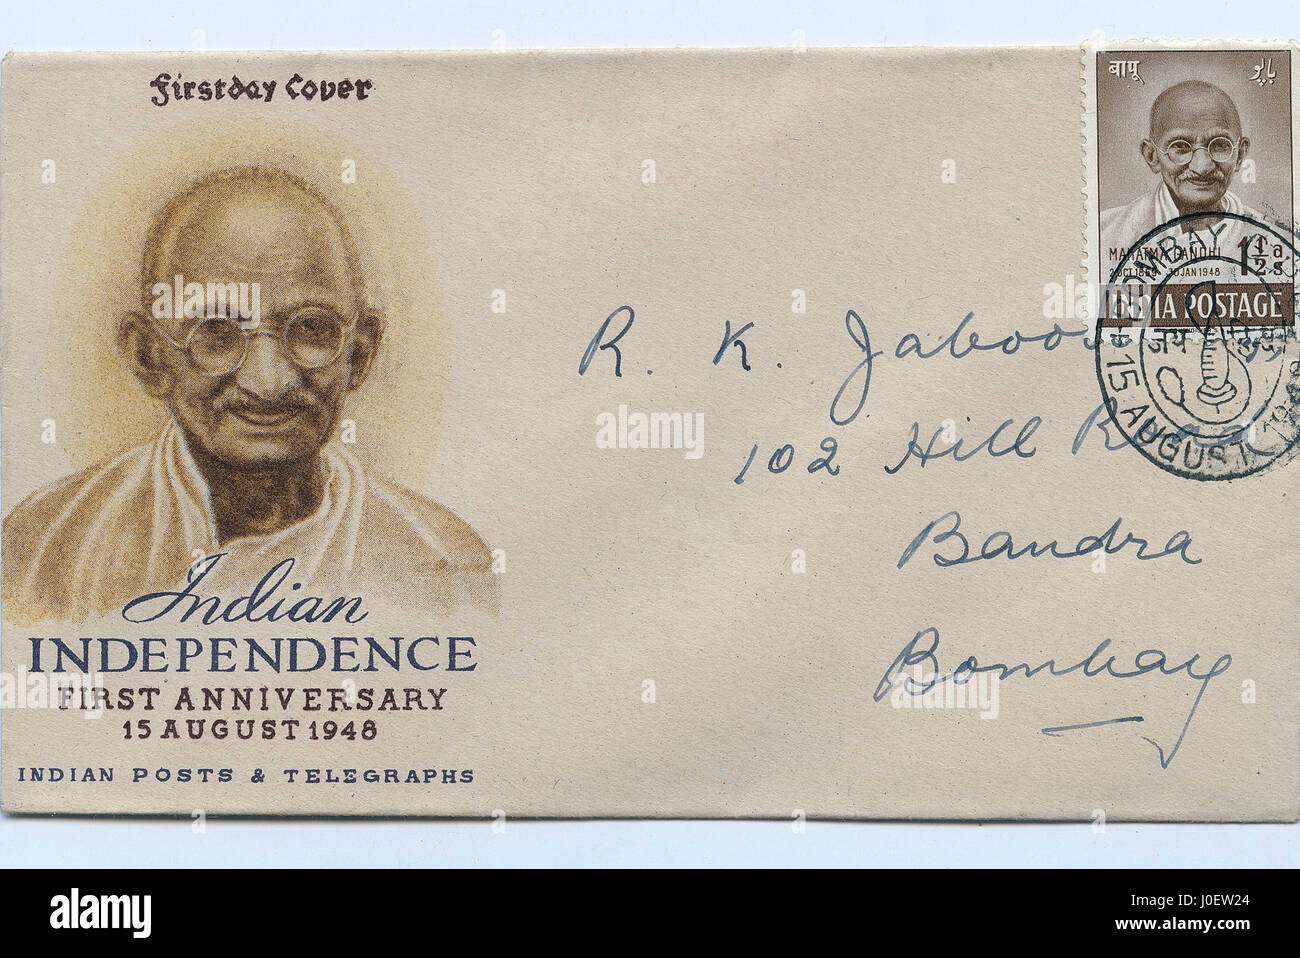 Firstday Cover
बापू
باپو
MAHATMA GANDHI
2 OCT 1869 30 JAN 1948
1½ as.
INDIA POSTAGE
BOMBAY
15 AUGUST 1948
जय
R. K. Jaboo
102 Hill Road
Bandra
Bombay
Indian
INDEPENDENCE
FIRST ANNIVERSARY
15 AUGUST 1948
INDIAN POSTS & TELEGRAPHS
alamy
Image ID: J0EW24
www.alamy.com